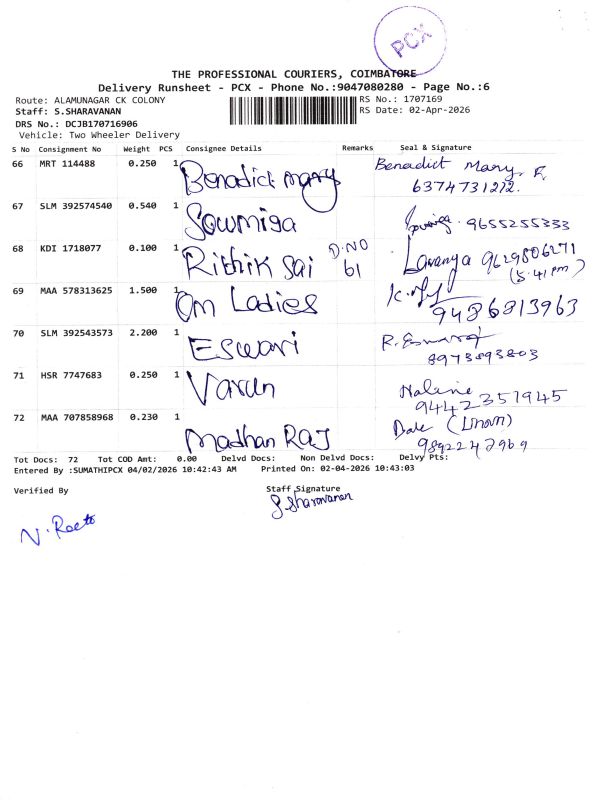 PCX
THE PROFESSIONAL COURIERS, COIMBATORE
Delivery Runsheet - PCX - Phone No.:9047080280 - Page No.:6
Route: ALAMUNAGAR CK COLONY
RS No.: 1707169
Staff: S.SHARAVANAN
RS Date: 02-Apr-2026
DRS No.: DCJB170716906
Vehicle: Two Wheeler Delivery
S No Consignment No Weight PCS Consignee Details Remarks Seal & Signature
66 MRT 114488 0.250 1 Benadict mary Benadict Mary. F
6374731212.
67 SLM 392574540 0.540 1 Sowmiga 9655255333
68 KDI 1718077 0.100 1 Rithik Sai D.NO 61 Lavanya 9629806271
(5.41 pm)
69 MAA 578313625 1.500 1 Om Ladies
9486813963
70 SLM 392543573 2.200 1 Eswari
8973893803
71 HSR 7747683 0.250 1 Varun
9442351945
72 MAA 707858968 0.230 1 Madhan RAJ
9892242969
Tot Docs: 72 Tot COD Amt: 0.00 Delvd Docs: Non Delvd Docs: Delvy Pts:
Entered By :SUMATHIPCX 04/02/2026 10:42:43 AM Printed On: 02-04-2026 10:43:03
Verified By
Staff Signature
S.Sharavanan